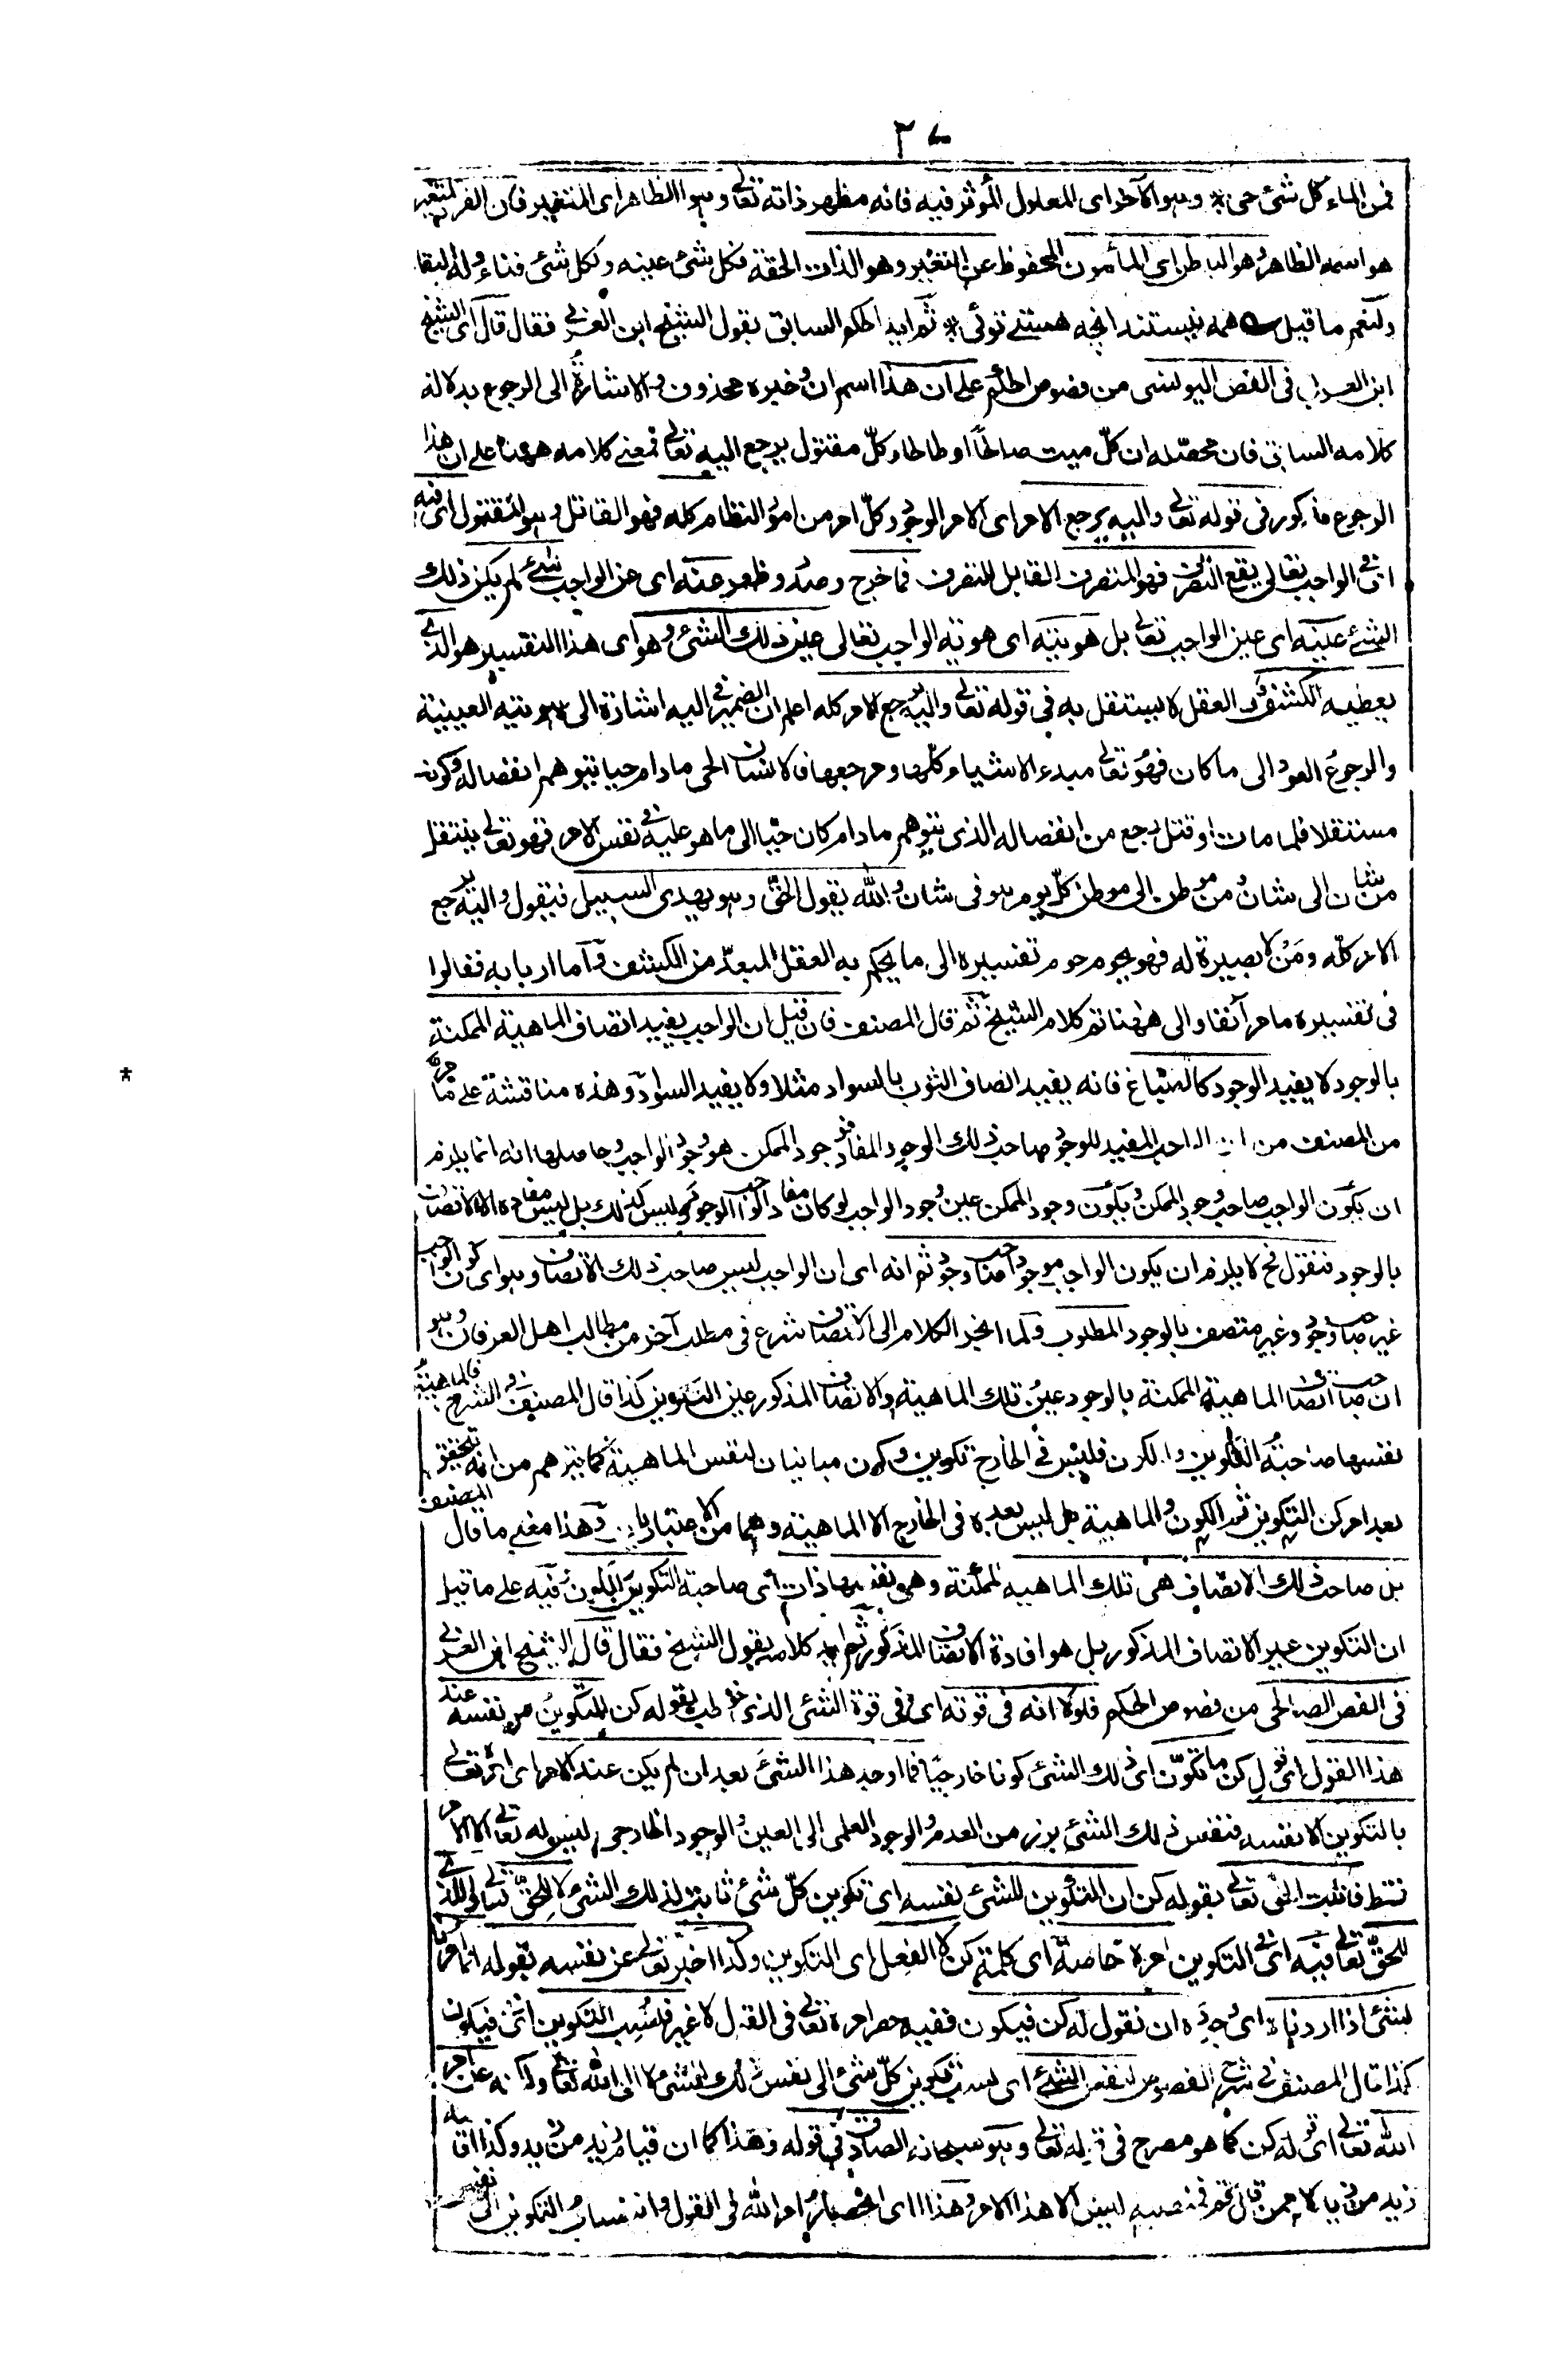 ٣٧
فمن الماء كل شئ حى * وهو الآخر اى المعلول المؤثر فيه فانه مظهر ذاته تعالى وهو الظاهر اى المتغير فان المتغير
هو اسمه الظاهر وهو الباطن اى المأمون المحفوظ عن التغير وهو الذات الحقة فكل شئ عينه ولكل شئ فناء وله البقا
ولنعم ما قيل همه نيستند انچه هستے توئى * ثم ايد الحكم السابق بقول الشيخ ابن العربى فقال قال اى الشيخ
ابن العربى فى الفص اليونسى من فصوص الحكم على ان هذا اسم ان وخبره محذوف والاشارة الى الرجوع بدلالة
كلامه السابق فان محصله ان كلّ ميت صالحًا او طالحا وكلّ مقتول يرجع اليه تعالى فمعنى كلامه ههنا على ان هذا
الرجوع مذكور فى قوله تعالى واليه يرجع الامر اى الامر الوجود وكلّ امر من امور النظام كله فهو القاتل وهو المقتول اى فيه
اى فى الواجب تعالى يقع التصرف فهو المتصرف القابل للتصرف فما خرج وصدر وظهر عنه اى عن الواجب شئ لم يكن ذلك
الشئ عينه اى عين الواجب تعالى بل هويته اى هوية الواجب تعالى عين ذلك الشئ وهو اى هذا التفسير هو الذى
يعطيه الكشف والعقل لا يستقل به فى قوله تعالى واليه يرجع الامر كله اعلم ان الضمير فى اليه اشارة الى هويته العينية
والرجوع العود الى ما كان فهو تعالى مبدء الاشياء كلها ومرجعها فالانسان الحى مادام حيا يتوهم انفصاله وكونه
مستقلا فلما مات او قتل رجع من انفصاله الذى يتوهم مادام كان حيا الى ما هو عليه فى نفس الامر فهو تعالى ينتقل
من شان الى شان ومن موطن الى موطن كلّ يوم هو فى شان والله يقول الحق وهو يهدى السبيل فيقول واليه يرجع
الامر كله ومن لا بصيرة له فهو يحوم حوم تفسيره الى ما يحكم به العقل المبعّد من الكشف وآما اربابه فقالوا
فى تفسيره ما مر آنفا والى ههنا تم كلام الشيخ ثم قال المصنف فان قيل ان الواجب يفيد اتصاف الماهية الممكنة
بالوجود لا يفيد الوجود كالصباغ فانه يفيد اتصاف الثوب بالسواد مثلا ولا يفيد السواد وهذه مناقشة على ما مرّ
من المصنف من الواجب المفيد للوجود صاحب ذلك الوجود المفاد فوجود الممكن هو وجود الواجب وحاصلها انه انما يلزم
ان يكون الواجب صاحب وجود الممكن ويكون وجود الممكن عين وجود الواجب لو كان مفاد الواجب الوجود وليس كذلك بل ليس مفاده الا الاتصاف
بالوجود فنقول فح لا يلزم ان يكون الواجب موجودا صاحب وجود ثم انه اى ان الواجب ليس صاحب ذلك الاتصاف وهو اى كون الواجب
غير صاحب وجود وغير متصف بالوجود المطلوب ولما انجر الكلام الى الاتصاف شرع فى مطلب آخر من مطالب اهل العرفان وهو
ان صاحب اتصاف الماهية الممكنة بالوجود عين تلك الماهية والاتصاف المذكور عين التكوين كذا قال المصنف فى الشرح فالماهية
نفسها صاحبة التكوين والكون فليس فى الخارج تكوين وكون مباينان لنفس الماهية كما يتوهم من انه يتحقق
بعد امر كن التكوين ثم الكون والماهية بل ليس بعده فى الخارج الا الماهية وهما من الاعتباريات وهذا معنى ما قال المصنف
بل صاحب ذلك الاتصاف هى تلك الماهية الممكنة وهى نفسها ذات اى صاحبة التكوين الكون فيه على ما قيل
ان التكوين غير الاتصاف المذكور بل هو افادة الاتصاف المذكور ثم ايد كلامه بقول الشيخ فقال قال الشيخ ابن العربى
فى الفص الصالحى من فصوص الحكم فلولا انه فى قوته اى فى قوة الشئ الذى خوطب بقوله كن للتكوين من نفسه عند
هذا القول اى قول كن ما تكوّن اى ذلك الشئ كونا خارجيًا فما اوجد هذا الشئ بعد ان لم يكن عند الامر اى امره تعالى
بالتكوين الا نفسه فنفس ذلك الشئ برز من العدم والوجود العلمى الى العين والوجود الخارجى ليس له تعالى الا الامر
فقط فاثبت الحق تعالى بقوله كن ان التكوين للشئ نفسه اى تكوين كلّ شئ ثابت لذلك الشئ لا للحق تعالى والذى
للحق تعالى فيه اى فى التكوين امره خاصة اى كلمة كن لا الفعل اى التكوين وكذا اخبر تعالى عن نفسه بقوله انما امرنا
لشئ اذا اردناه اى وجوده ان نقول له كن فيكون ففيه حصر امره تعالى فى القول لا غير فنسب التكوين اى فيكون
كذا قال المصنف فى شرح الفصوص لنفس الشئ اى نسب تكوين كلّ شئ الى نفس ذلك الشئ لا الى الله تعالى ولكنه عن امر
الله تعالى اى قوله كن كما هو مصرح فى قوله تعالى وهو سبحانه الصادق فى قوله وهذا كما ان قيام زيد من زيد وكذا اقامة
زيد من ليس الا هذا الامر وهذا اى انحصار امر الله فى القول وانتساب التكوين الى نفس